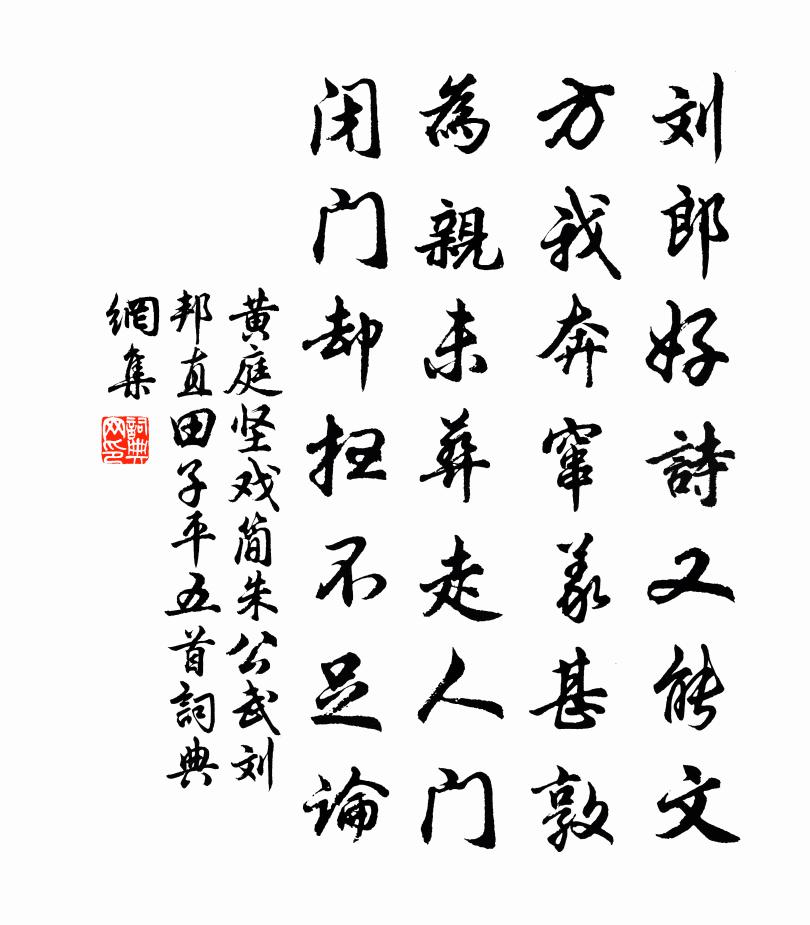 刘郎好詩又能文
方我奔窜義甚敦
為親未葬走人门
闭门却扫不足論
黄庭坚戏简朱公武刘
邦直田子平五首詞典
網集
詞典
网印